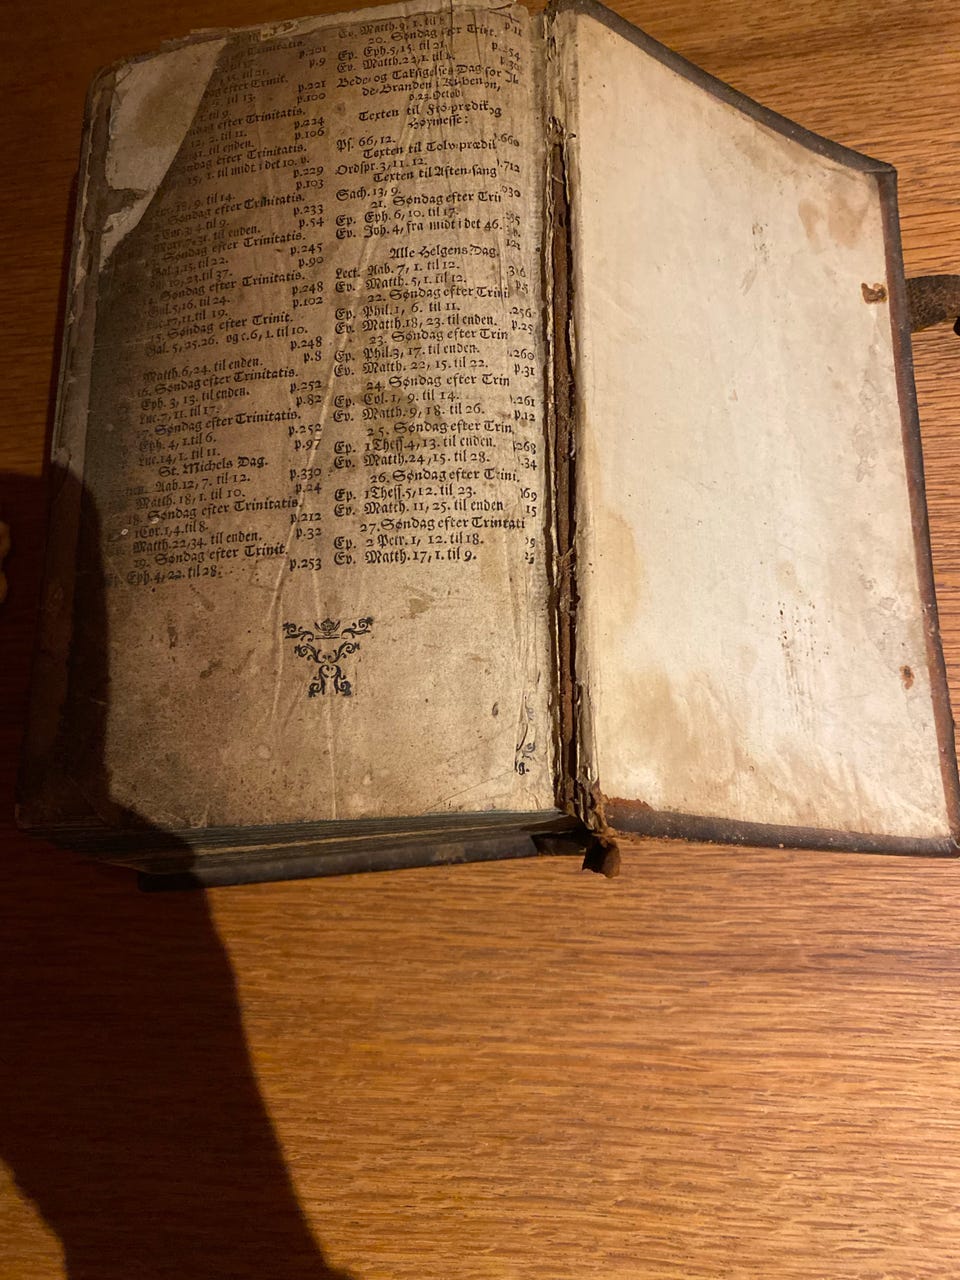 Trinitatis.
p.201
p.9
Trinit.
til 13. p.221
til 9. p.100
efter Trinitatis.
til 11. p.224
til enden. p.106
Søndag efter Trinitatis.
15, 1. til midt i det 10. v.
p.229
18, 9. til 14. p.103
Søndag efter Trinitatis.
2 Cor. 3, 4. til 9. p.233
Marc. 7, 31. til enden. p.54
Søndag efter Trinitatis.
Gal. 3, 15. til 22. p.245
10, 23. til 37. p.90
Søndag efter Trinitatis.
Gal. 5, 16. til 24. p.248
Luc. 17, 11. til 19. p.102
15. Søndag efter Trinit.
Gal. 5, 25. 26. og c. 6, 1. til 10.
p.248
Matth. 6, 24. til enden. p.8
16. Søndag efter Trinitatis.
Eph. 3, 13. til enden. p.252
Luc. 7, 11. til 17. p.82
Søndag efter Trinitatis.
Eph. 4, 1. til 6. p.252
Luc. 14, 1. til 11. p.97
St. Michels Dag.
Aab. 12, 7. til 12. p.330
Matth. 18, 1. til 10. p.24
18. Søndag efter Trinitatis.
1 Cor. 1, 4. til 8. p.212
Matth. 22, 34. til enden. p.32
19. Søndag efter Trinit.
Ep. Eph. 4, 22. til 28. p.253
Ev. Matth. 9, 1. til 8. p.11
20. Søndag efter Trint.
Ep. Eph. 5, 15. til 21. p.254
Ev. Matth. 22, 1. til
Bede- og Taksigelses Dag for
de Branden i Kiøbenon,
p. 23. Octob.
Texten til Fro-prædik og
Høymesse:
Ps. 66, 12.
Texten til Tolv-prædik
Ordspr. 3, 11. 12. 712
Texten til Aften-sang
Sach. 13, 9.
21. Søndag efter Tri
Ep. Eph. 6, 10. til 17.
Ev. Joh. 4, fra midt i det 46. v.
Alle Helgens Dag.
Lect. Aab. 7, 1. til 12.
Ev. Matth. 5, 1. til 12.
22. Søndag efter Trini
Ep. Phil. 1, 6. til 11. 256
Ev. Matth. 18, 23. til enden. p.25
23. Søndag efter Trin
Ep. Phil. 3, 17. til enden. 260
Ev. Matth. 22, 15. til 22. p.31
24. Søndag efter Trin
Ep. Col. 1, 9. til 14. 261
Ev. Matth. 9, 18. til 26. p.12
25. Søndag efter Trin
Ep. 1 Thess. 4, 13. til enden. 268
Ev. Matth. 24, 15. til 28. 34
26. Søndag efter Trini.
Ep. 1 Thess. 5, 12. til 23. 169
Ev. Matth. 11, 25. til enden 15
27. Søndag efter Trinitati
Ep. 2 Petr. 1, 12. til 18.
Ev. Matth. 17, 1. til 9.